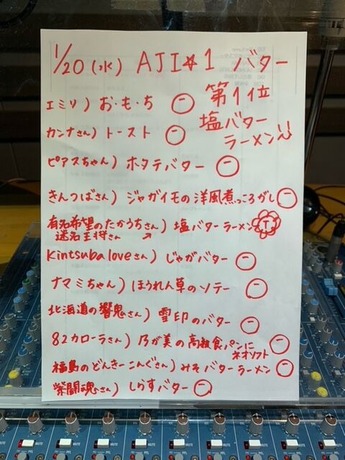 1/20(水) AJI☆1 バター
第1位
塩バター
ラーメン!!
エミリ) お・も・ち ー
カンナさん) トースト ー
ピアスちゃん) ホタテバター ー
きんつばさん) ジャガイモの洋風煮っころがし ー
有名希望のたかうちさん) 塩バターラーメン 1
迷名主得さん ↗
Kintsuba loveさん) じゃがバター ー
ナマミちゃん) ほうれん草のソテー ー
北海道の響鬼さん) 雪印のバター ー
82カローラさん) 乃が美の高級食パンに
ネオソフト ー
福島のどんきーこんぐさん) みそバターラーメン ー
紫闘魂さん) しらすバター ー